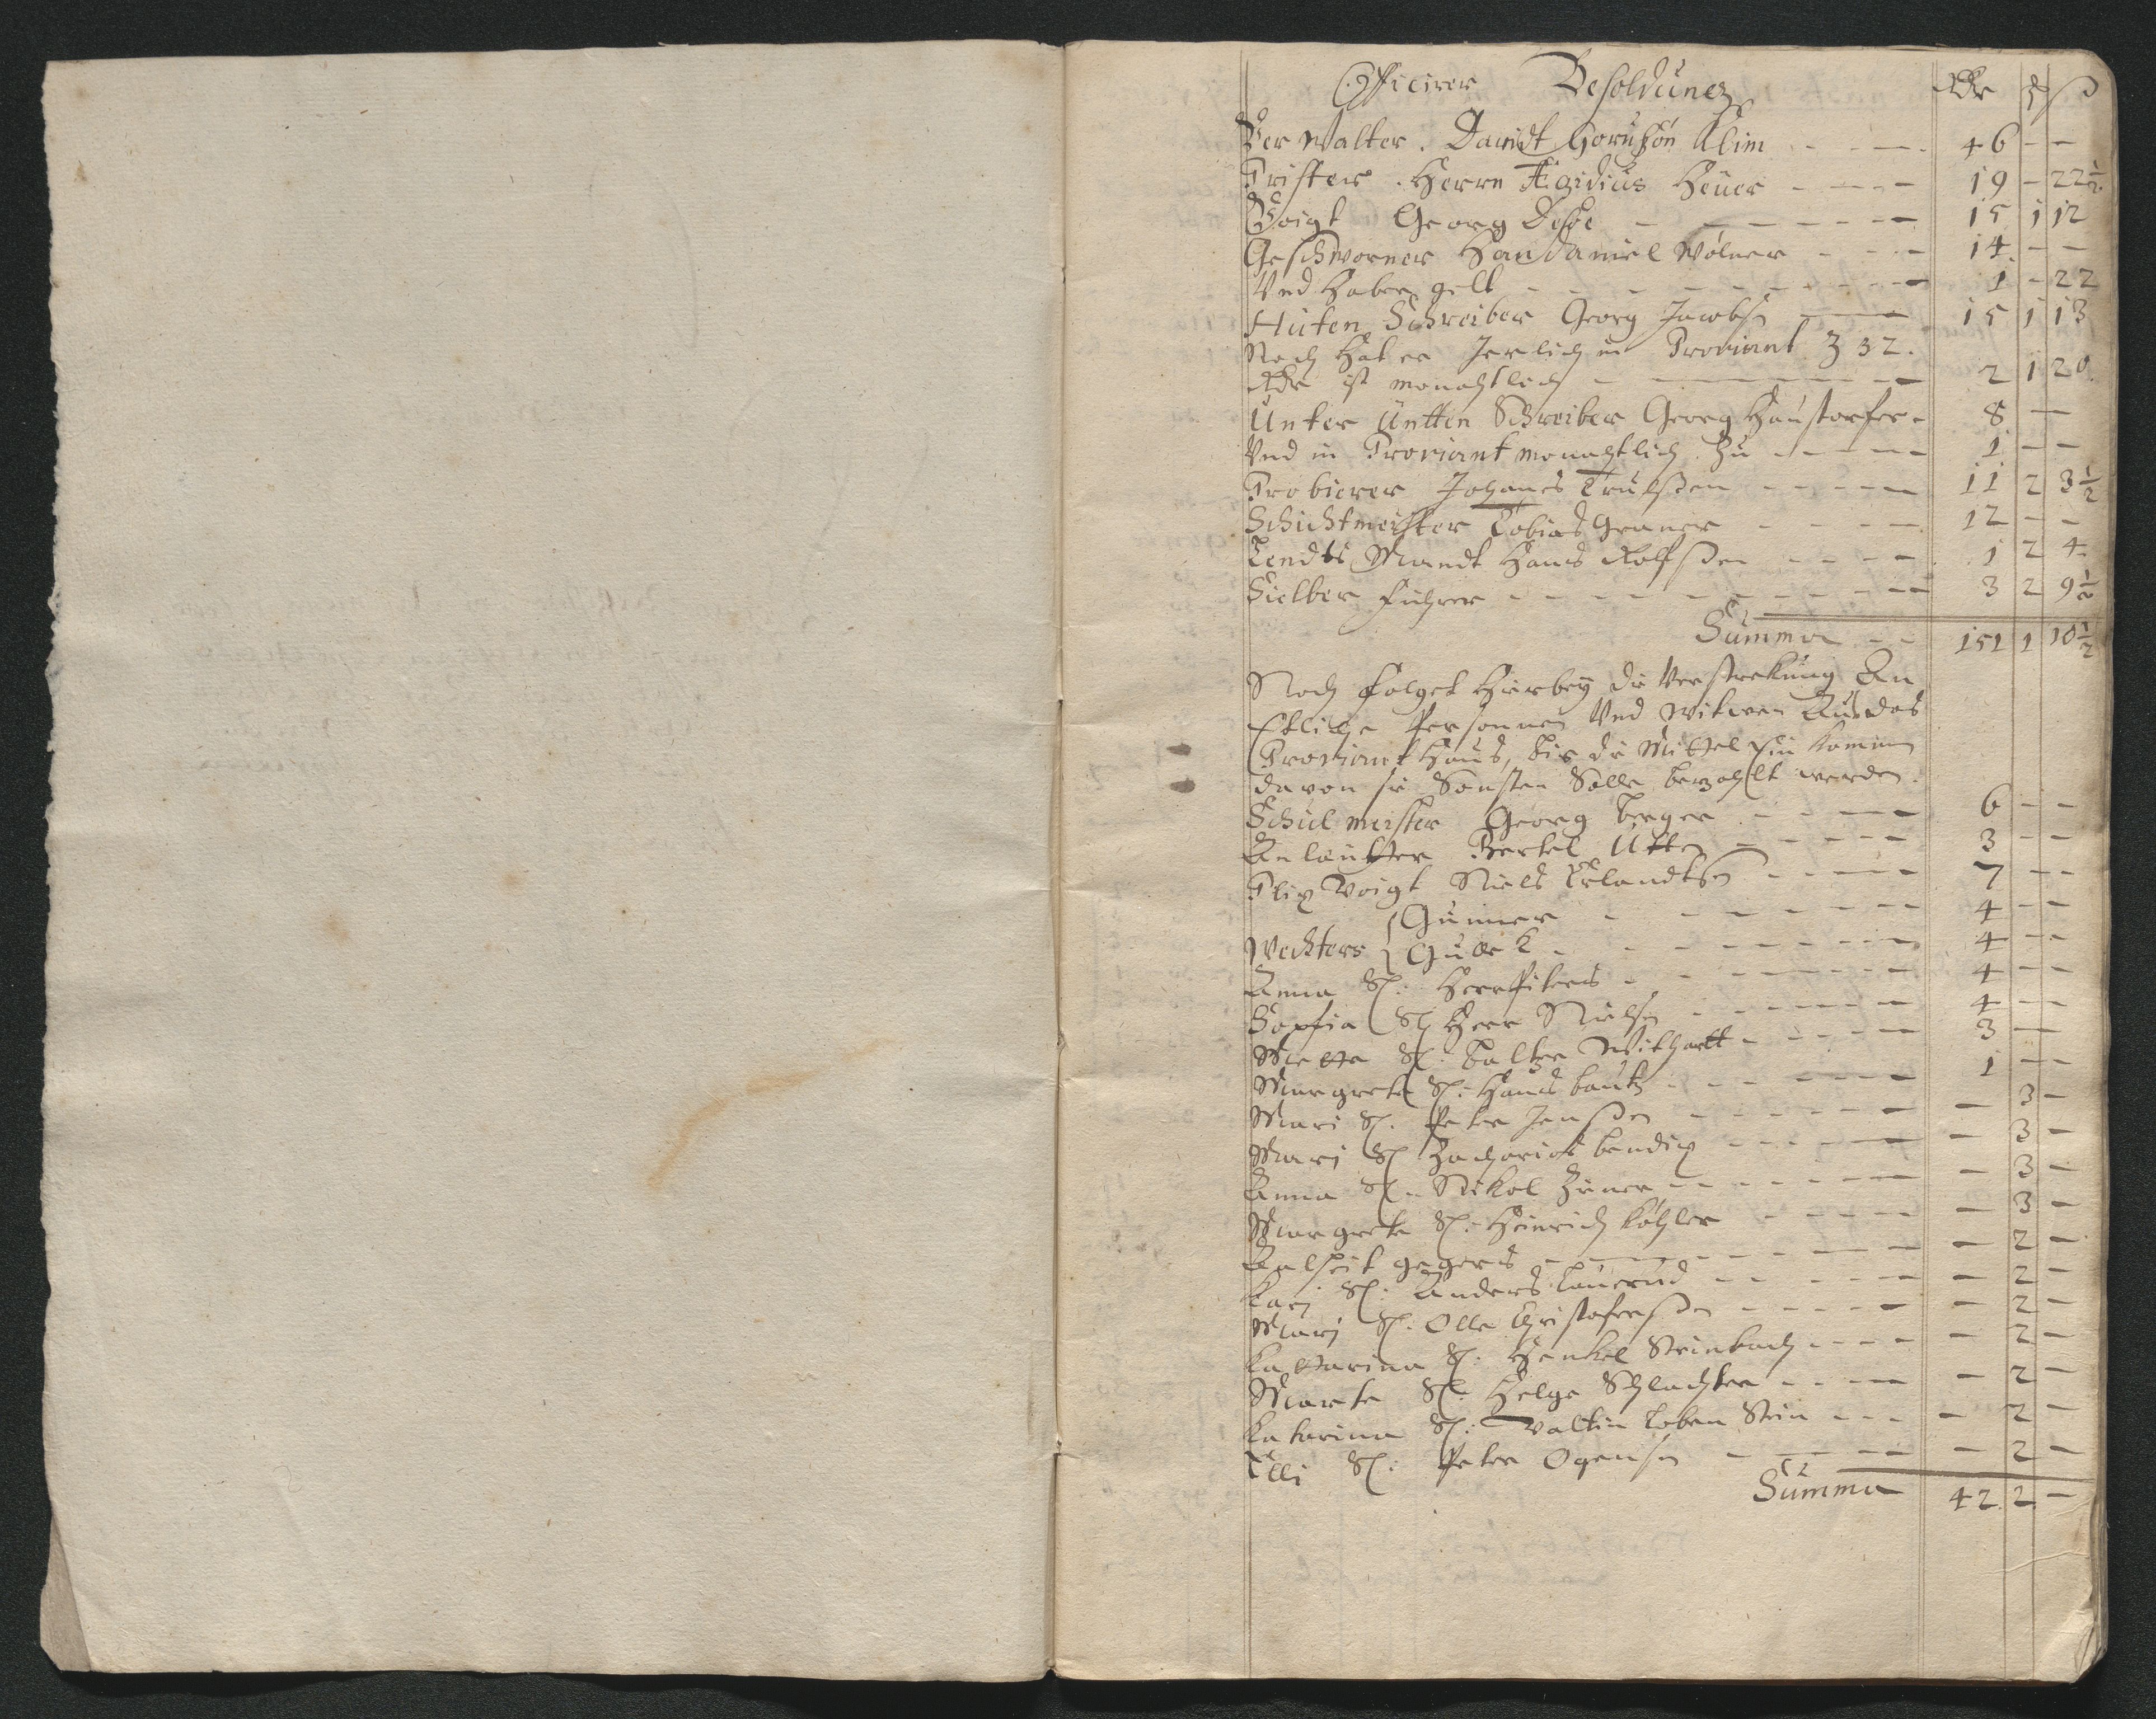 Officirer Besoldung Rdr ß
Verwalter. Davidt Gorußön Klim - - - 46 - -
Prister. Herrn Ægidius Heuer - - - 19 - 22½
Voigt Georg Dehe - - - 15 1 12
Geschworner Han Daniel Wölner - - - 14 - -
Vnd Haber gelt - - - 1 - 22
Hüten Schreiber Georg Jacobsen - - - 15 1 13
Noch Hat er Jerlich in Proviant 3 32.
Rdr ist monahtlich - - - 2 1 20.
Unter Üntten Schreiber Georg Haustorfer - 8 -
Vnd in Proviant monahtlich Zu - - - 1 - -
Probierer Johanes Trulssen - - - 11 2 3½
Schichtmeister Tobias Graner - - - 12 - -
Zendts Mandt Hans Rolfssen - - - 1 2 4
Sielber fuhrer - - - 3 2 9½
Summa - - 151 1 10½
Noch folget Hierbey die Verstrekung An
Etliche Personnen Vnd Witwen Aus das
Proviant Haus, bis die Mittel ein komen
davon sie Sonsten Solle bezahlt werden.
Schulmeister Georg Berger - - - 6 - -
Anleuter Bertel Utten - - - 3 - -
Plix Voigt Niels Erlandtsen - - - 7 - -
Gunner - - - 4 - -
Wechters Gulek - - - 4 - -
Anna Sl: Herr Piters - - - 4 - -
Sopfia Sl Herr Nielsen - - - 4 - -
Metta Sl: Baltzer Withartt - - - 3 -
Margreta Sl: Hans bautz - - - 1 - -
Mari Sl. Peter Jenssen - - - - 3 -
Marj Sl Zacharias bendix - - - - 3 -
Anna Sl: Nikol Ziener - - - - 3 -
Margreta Sl: Heinrich köhler - - - - 3 -
Aalheit gegers - - - - 2 -
Karj Sl: Anders Lauerud - - - - 2 -
Marj Sl: Olle Christoferssen - - - - 2 -
Kattarina Sl: Henkel Steinbach - - - - 2 -
Marte Sl: Helge Schlachter - - - - 2 -
Katarina Sl: Valtin Loben Stein - - - - 2 -
Elli Sl: Peter Ogensen - - - - 2 -
Summa 42. 2. -